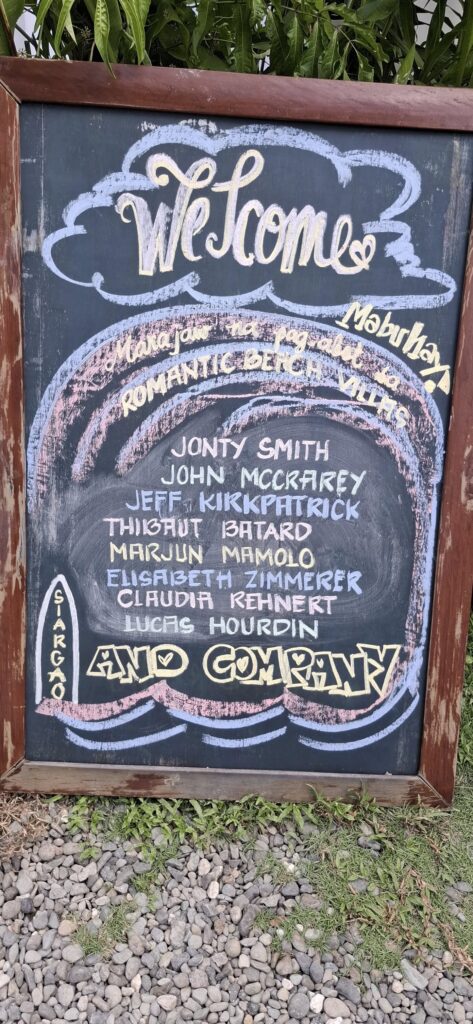 Welcome
Mabuhay!
Marajaw na pag-abot sa
ROMANTIC BEACH VILLAS
JONTY SMITH
JOHN MCCRAREY
JEFF KIRKPATRICK
THIBAUT BATARD
MARJUN MAMOLO
ELISABETH ZIMMERER
CLAUDIA REHNERT
LUCAS HOURDIN
AND COMPANY
SIARGAO